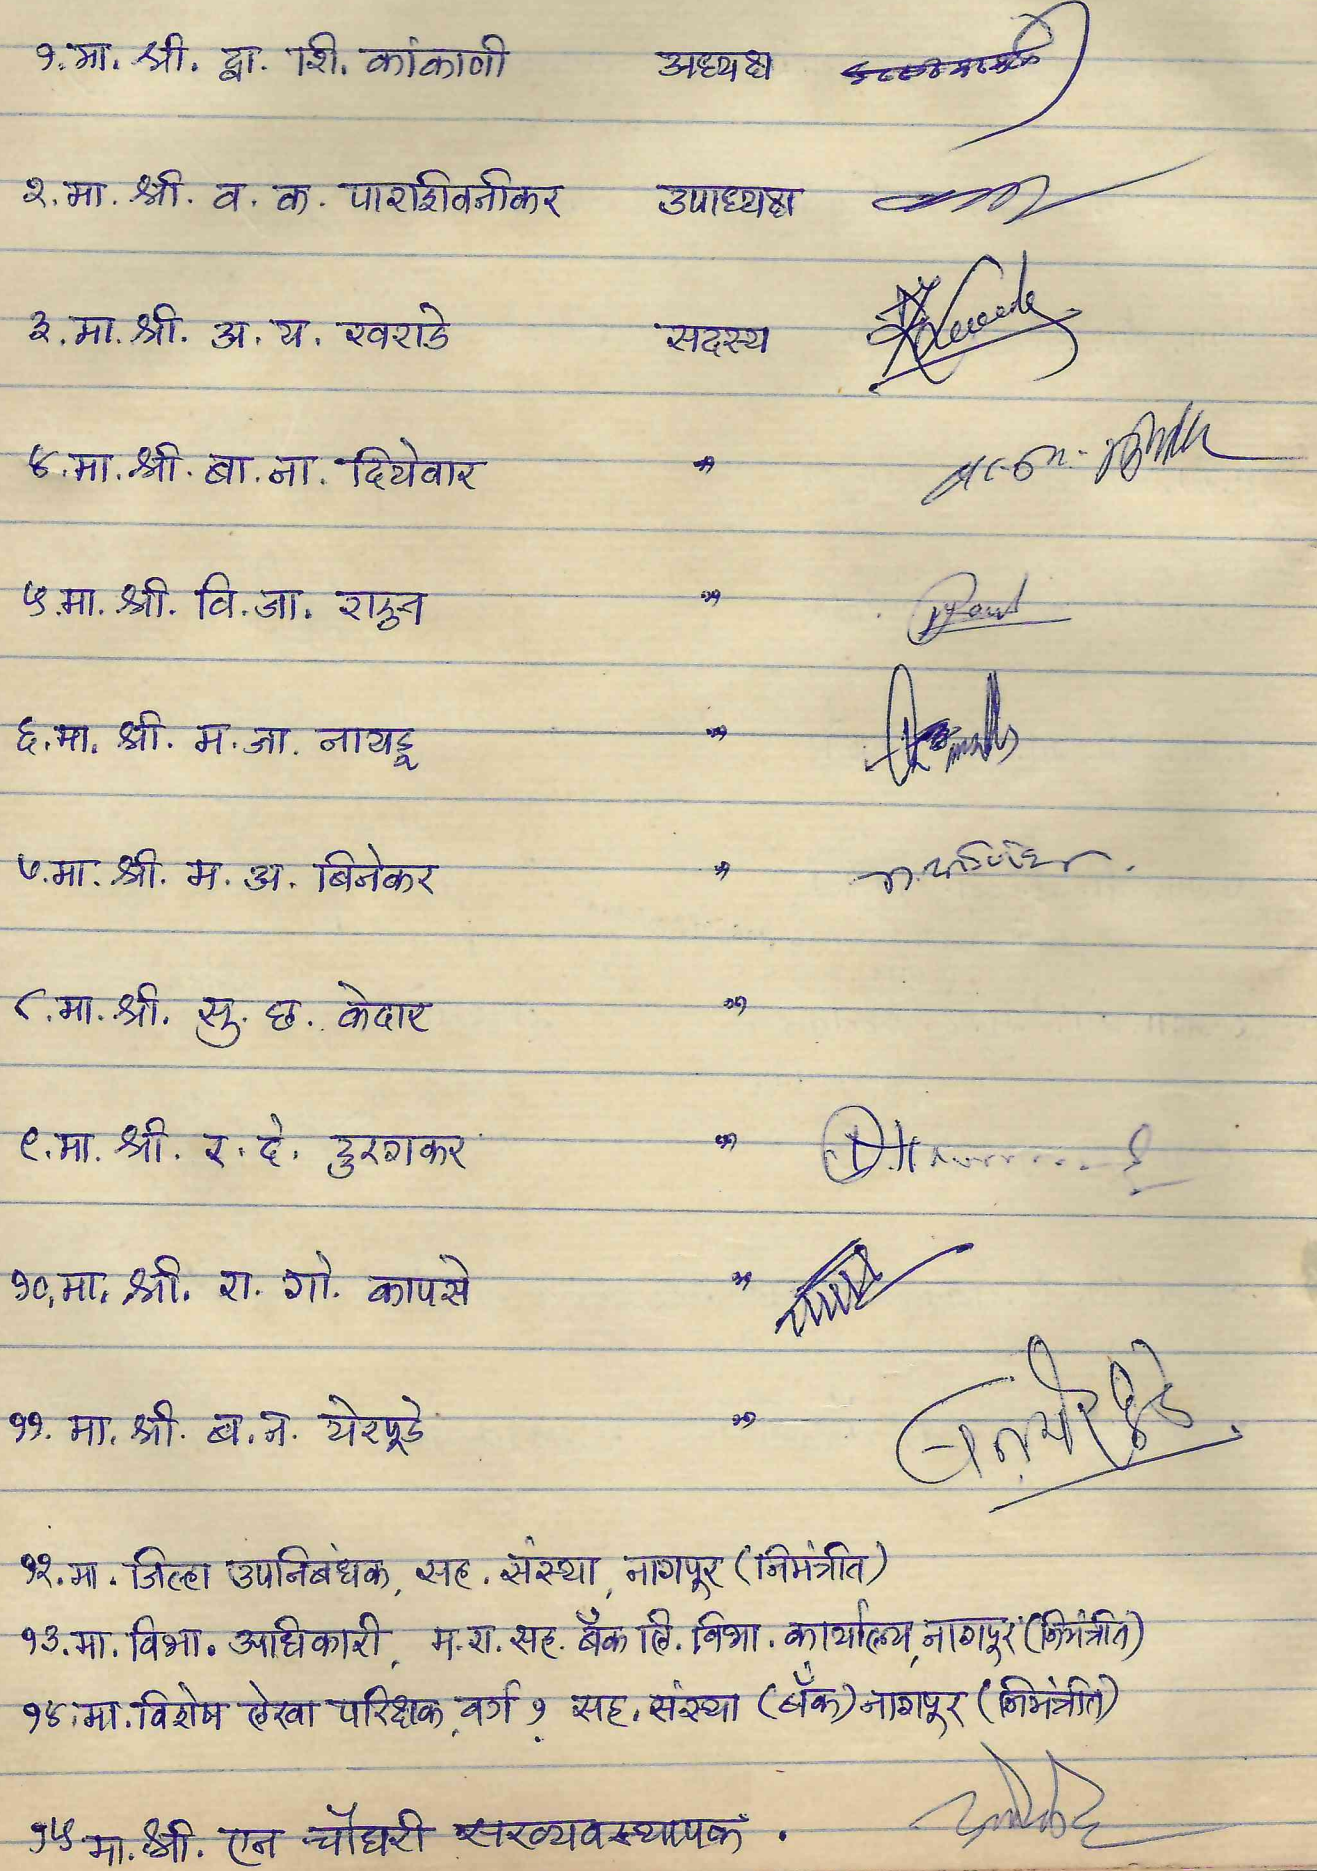 १. मा. श्री. द्वा. शि. कांकाणी अध्यक्ष
२. मा. श्री. व. क. पारशिवनीकर उपाध्यक्ष
३. मा. श्री. अ. य. खराडे सदस्य
४. मा. श्री. बा. ना. दियेवार "
५. मा. श्री. वि. जा. राऊत "
६. मा. श्री. म. जा. नायडू "
७. मा. श्री. म. अ. बिनेकर "
८. मा. श्री. सु. छ. केदार "
९. मा. श्री. र. दे. दुरगकर "
१०. मा. श्री. रा. गो. कापसे "
११. मा. श्री. ब. न. येरपूडे "
१२. मा. जिल्हा उपनिबंधक, सह. संस्था, नागपूर (निमंत्रीत)
१३. मा. विभा. अधिकारी, म. रा. सह. बँक लि. विभा. कार्यालय, नागपूर (निमंत्रीत)
१४. मा. विशेष लेखा परिक्षक, वर्ग १ सह. संस्था (बँक) नागपूर (निमंत्रीत)
१५ मा. श्री. एन चौधरी सरव्यवस्थापक.